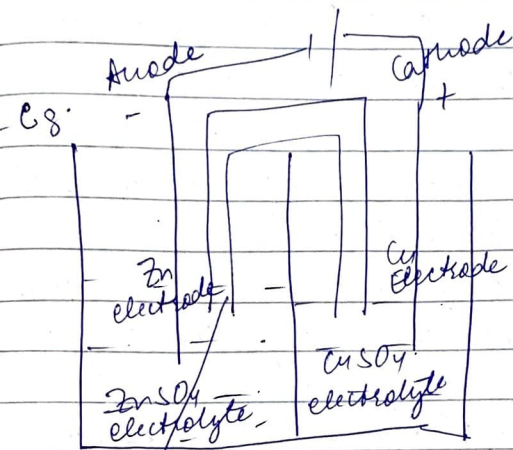 Anode
Cathode
eg.
-
+
Zn
electrode
Cu
Electrode
ZnSO4
electrolyte
CuSO4
electrolyte